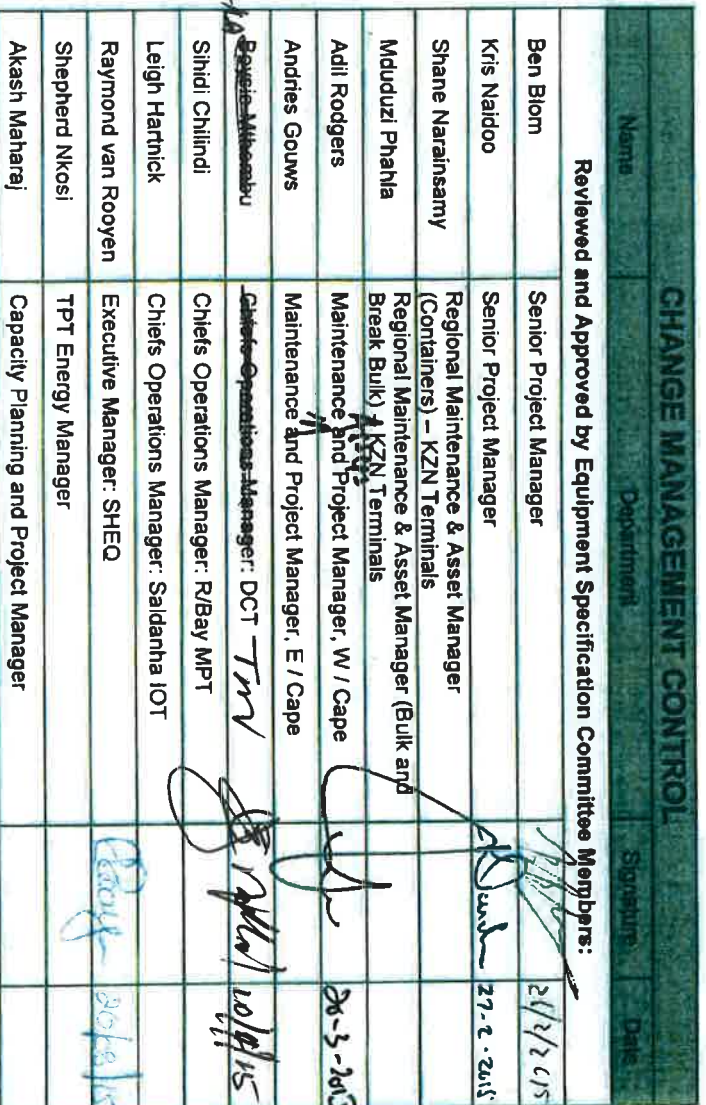 CHANGE MANAGEMENT CONTROL
Name Department Signature Date
Reviewed and Approved by Equipment Specification Committee Members:
Ben Blom Senior Project Manager
Kris Naidoo Senior Project Manager 27-2-2015
Shane Narainsamy Regional Maintenance & Asset Manager
(Containers) – KZN Terminals
Mduduzi Phahla Regional Maintenance & Asset Manager (Bulk and
Break Bulk) KZN Terminals
Adil Rodgers Maintenance and Project Manager, W / Cape
Andries Gouws Maintenance and Project Manager, E / Cape
Chiefs Operations Manager: DCT
Sihidi Chilindi Chiefs Operations Manager: R/Bay MPT
Leigh Hartnick Chiefs Operations Manager: Saldanha IOT
Raymond van Rooyen Executive Manager: SHEQ
Shepherd Nkosi TPT Energy Manager
Akash Maharaj Capacity Planning and Project Manager